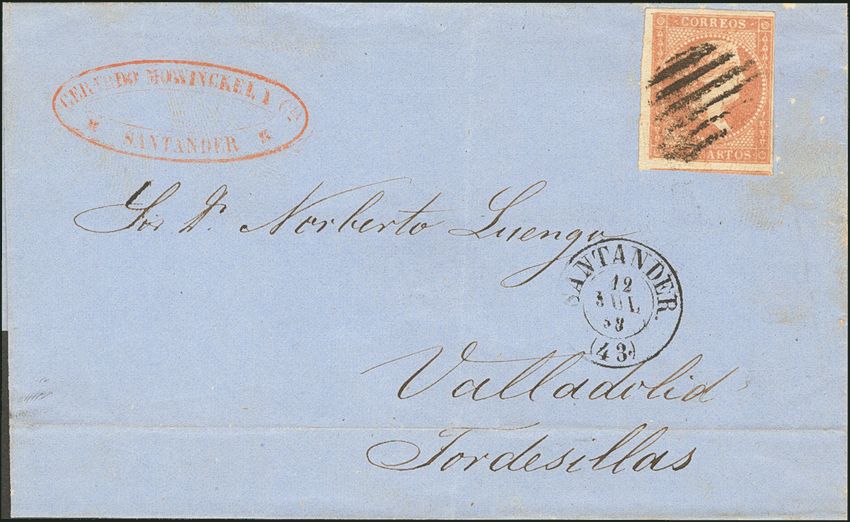 GERARDO MOWINCKEL Y Cia
SANTANDER
CORREOS
CUARTOS
Sor Dn Norberto Luengo
SANTANDER
12
JUL
58
(43)
Valladolid
Tordesillas